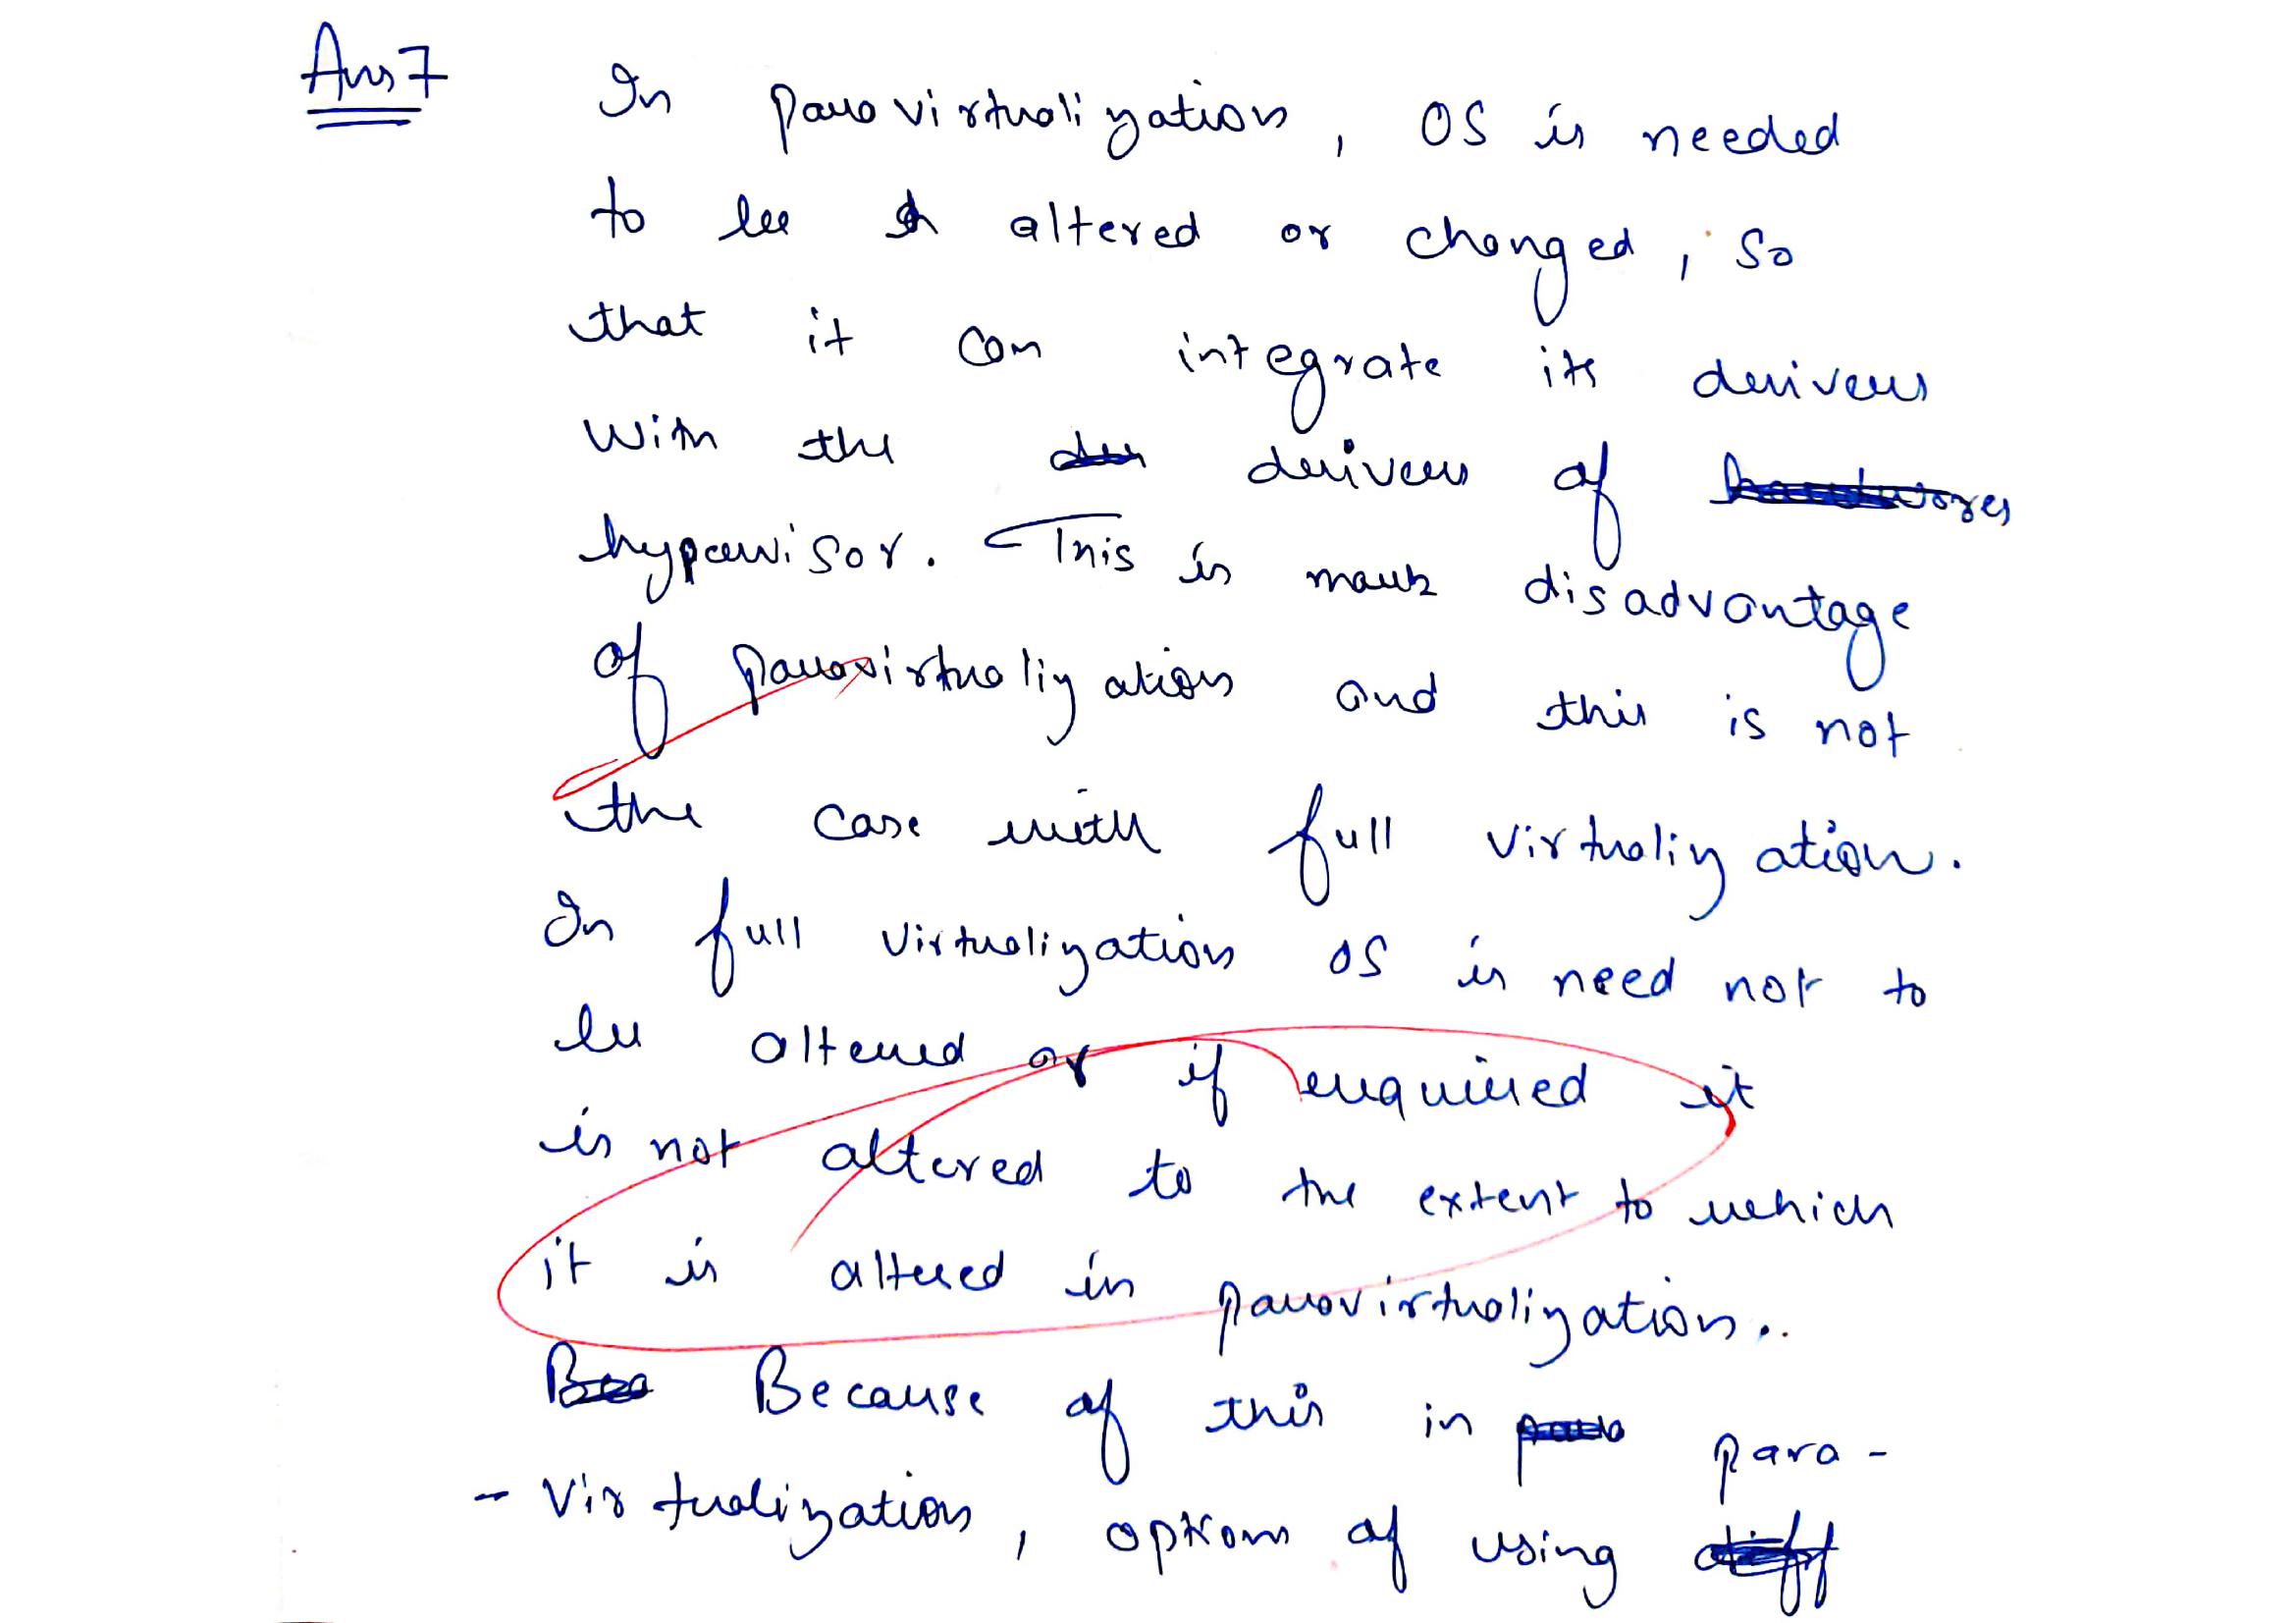 Ans 7 In paravirtualization, OS is needed
to be altered or changed, so
that it can integrate its derivers
with the derivers of
hypervisor. This is mark disadvantage
of paravirtualization and this is not
the case with full virtualization.
In full virtualization OS is need not to
be altered or if required it
is not altered to the extent to which
it is altered in paravirtualization..
Because of this in para-
- virtualization, options of using